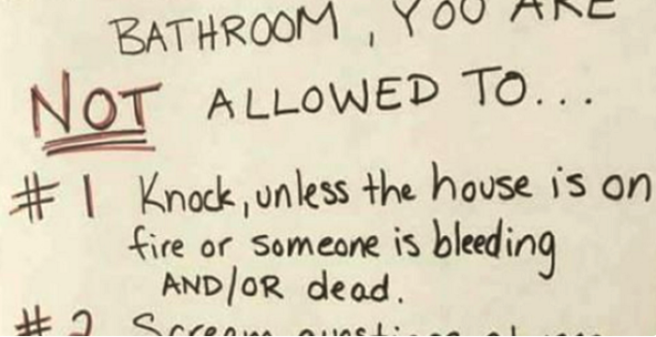 BATHROOM, YOU ARE
NOT ALLOWED TO...
#1 Knock, unless the house is on
fire or someone is bleeding
AND/OR dead.
#2 Scream questions